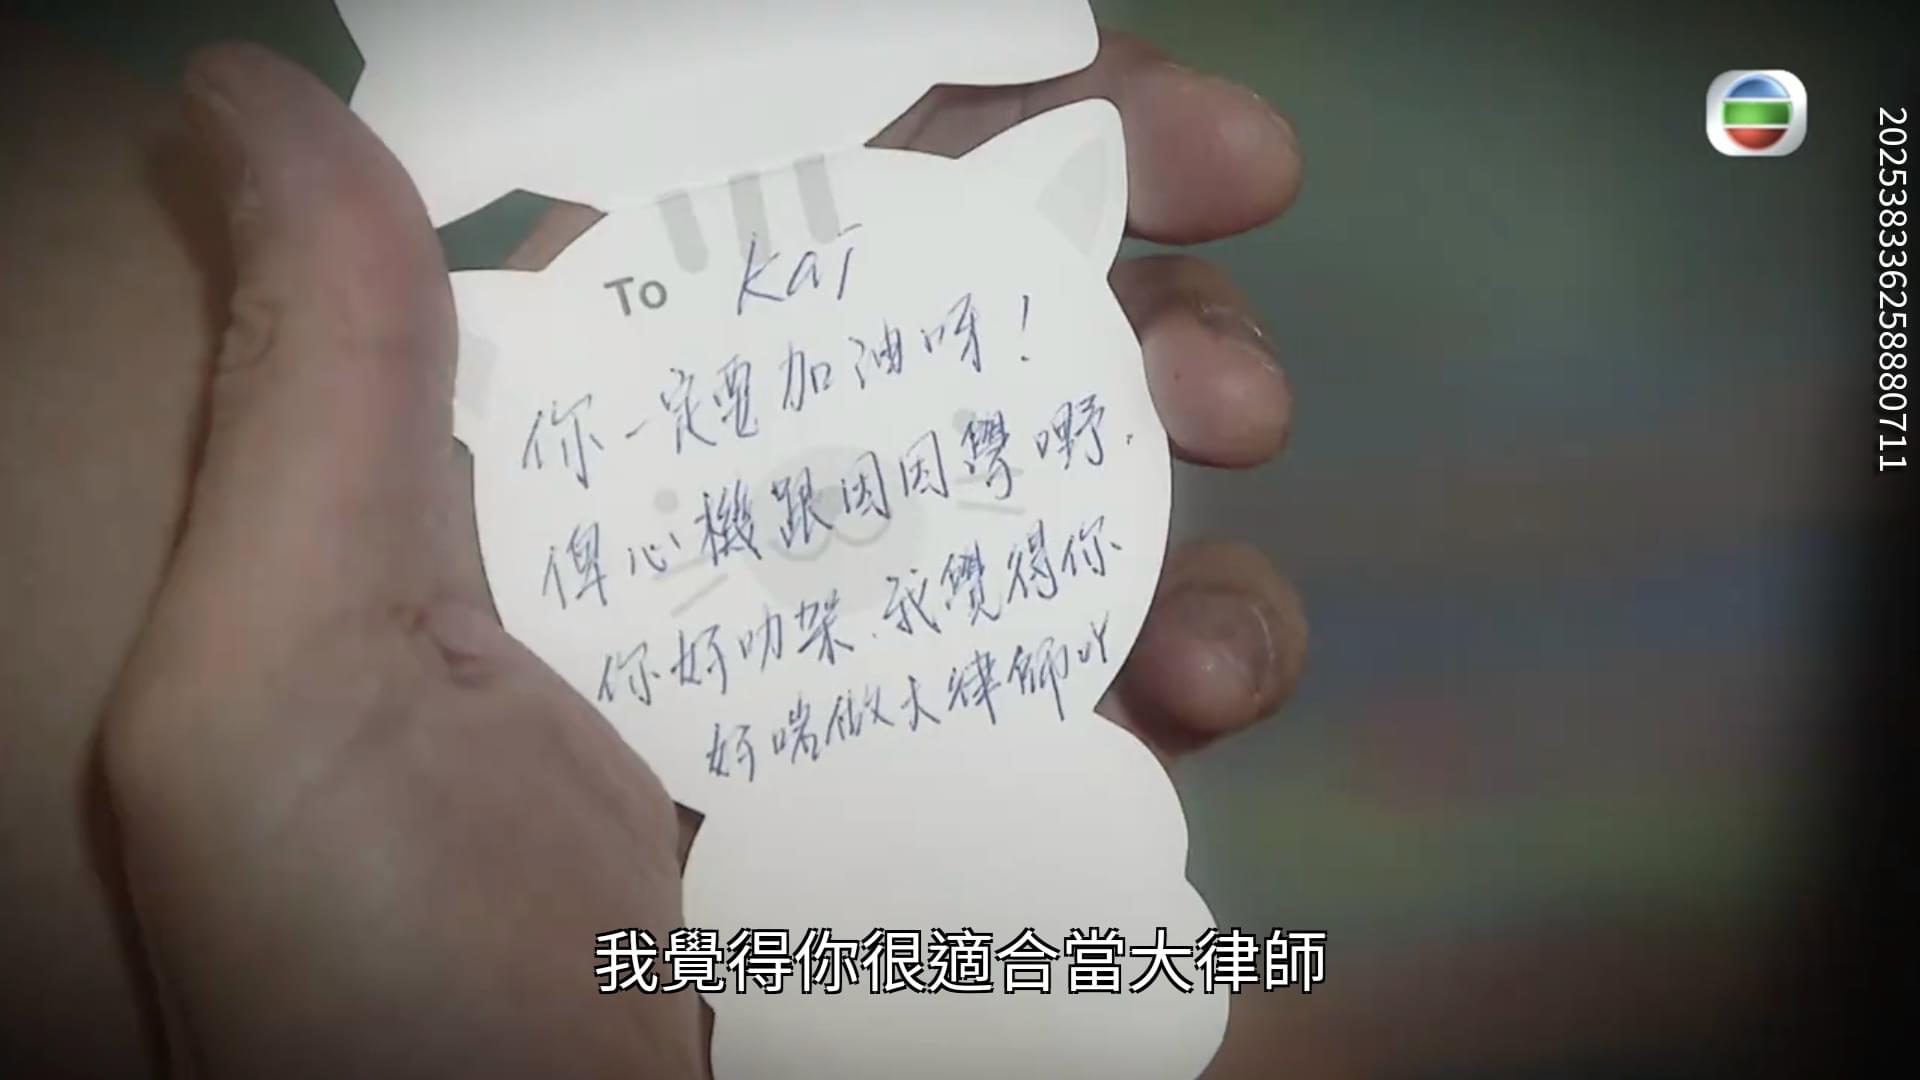 To Kai
你一定要加油呀！
俾心機跟因因學嘢.
你好叻架、我覺得你
好啱做大律師吖
我覺得你很適合當大律師
202538336258880711